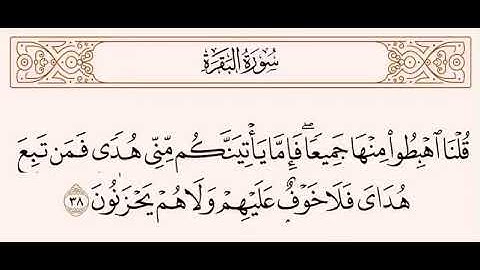 سُورَةُ البَقَرَةِ
قُلْنَا ٱهْبِطُوا۟ مِنْهَا جَمِيعًا ۖ فَإِمَّا يَأْتِيَنَّكُم مِّنِّى هُدًى فَمَن تَبِعَ
هُدَاىَ فَلَا خَوْفٌ عَلَيْهِمْ وَلَا هُمْ يَحْزَنُونَ ٣٨